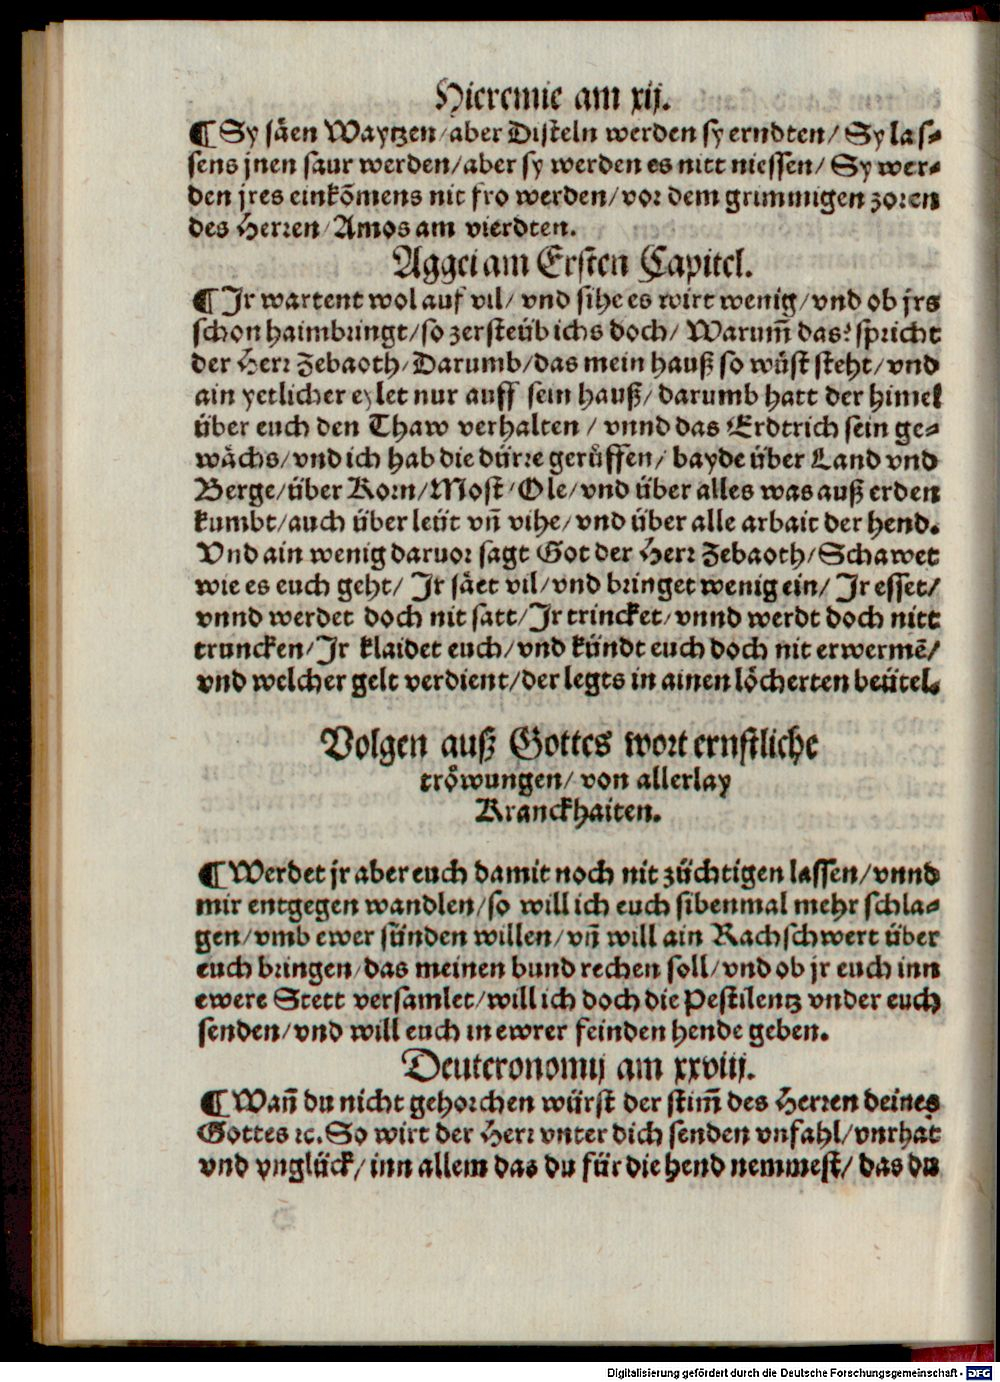 Hieremie am xij.
¶ Sy säen Waytzen/aber Disteln werden sy erndten/ Sy las⸗
sens jnen saur werden/aber sy werden es nitt niessen/ Sy wer⸗
den jres einkõmens nit fro werden/vor dem grimmigen zoren
des Herren/Amos am vierdten.
Aggei am Ersten Capitel.
¶ Jr wartent wol auf vil/ vnd sihe es wirt wenig/vnd ob jrs
schon haimbringt/so zersteüb ichs doch/ Warum̃ das? spricht
der Herr Zebaoth/Darumb/das mein hauß so wüst steht/vnd
ain yetlicher eylet nur auff sein hauß/ darumb hatt der himel
über euch den Thaw verhalten / vnnd das Erdtrich sein ge⸗
wächs/vnd ich hab die dürre gerůffen/ bayde über Land vnd
Berge/über Korn/Most/Ole/vnd über alles was auß erden
kumbt/auch über leüt vñ vihe/vnd über alle arbait der hend.
Vnd ain wenig daruor sagt Got der Herr Zebaoth/Schawet
wie es euch geht/ Jr säet vil/vnd bringet wenig ein/ Jr esset/
vnnd werdet doch nit satt/Jr trincket/vnnd werdt doch nitt
truncken/Jr klaidet euch/vnd kündt euch doch nit erwermẽ/
vnd welcher gelt verdient/der legts in ainen löcherten beütel.
Volgen auß Gottes wort ernstliche
tröwungen/von allerlay
Kranckhaiten.
¶ Werdet jr aber euch damit noch nit züchtigen lassen/vnnd
mir entgegen wandlen/so will ich euch sibenmal mehr schla⸗
gen/vmb ewer sünden willen/vñ will ain Rachschwert über
euch bringen/das meinen bund rechen soll/vnd ob jr euch inn
ewere Stett versamlet/will ich doch die Pestilentz vnder euch
senden/vnd will euch in ewrer feinden hende geben.
Deuteronomij am xxviij.
¶ Wañ du nicht gehorchen würst der stim̃ des Herren deines
Gottes ꝛc. So wirt der Herr vnter dich senden vnfahl/vnrhat
vnd vnglück/inn allem das du für die hend nemmest/das du
Digitalisierung gefördert durch die Deutsche Forschungsgemeinschaft - DFG